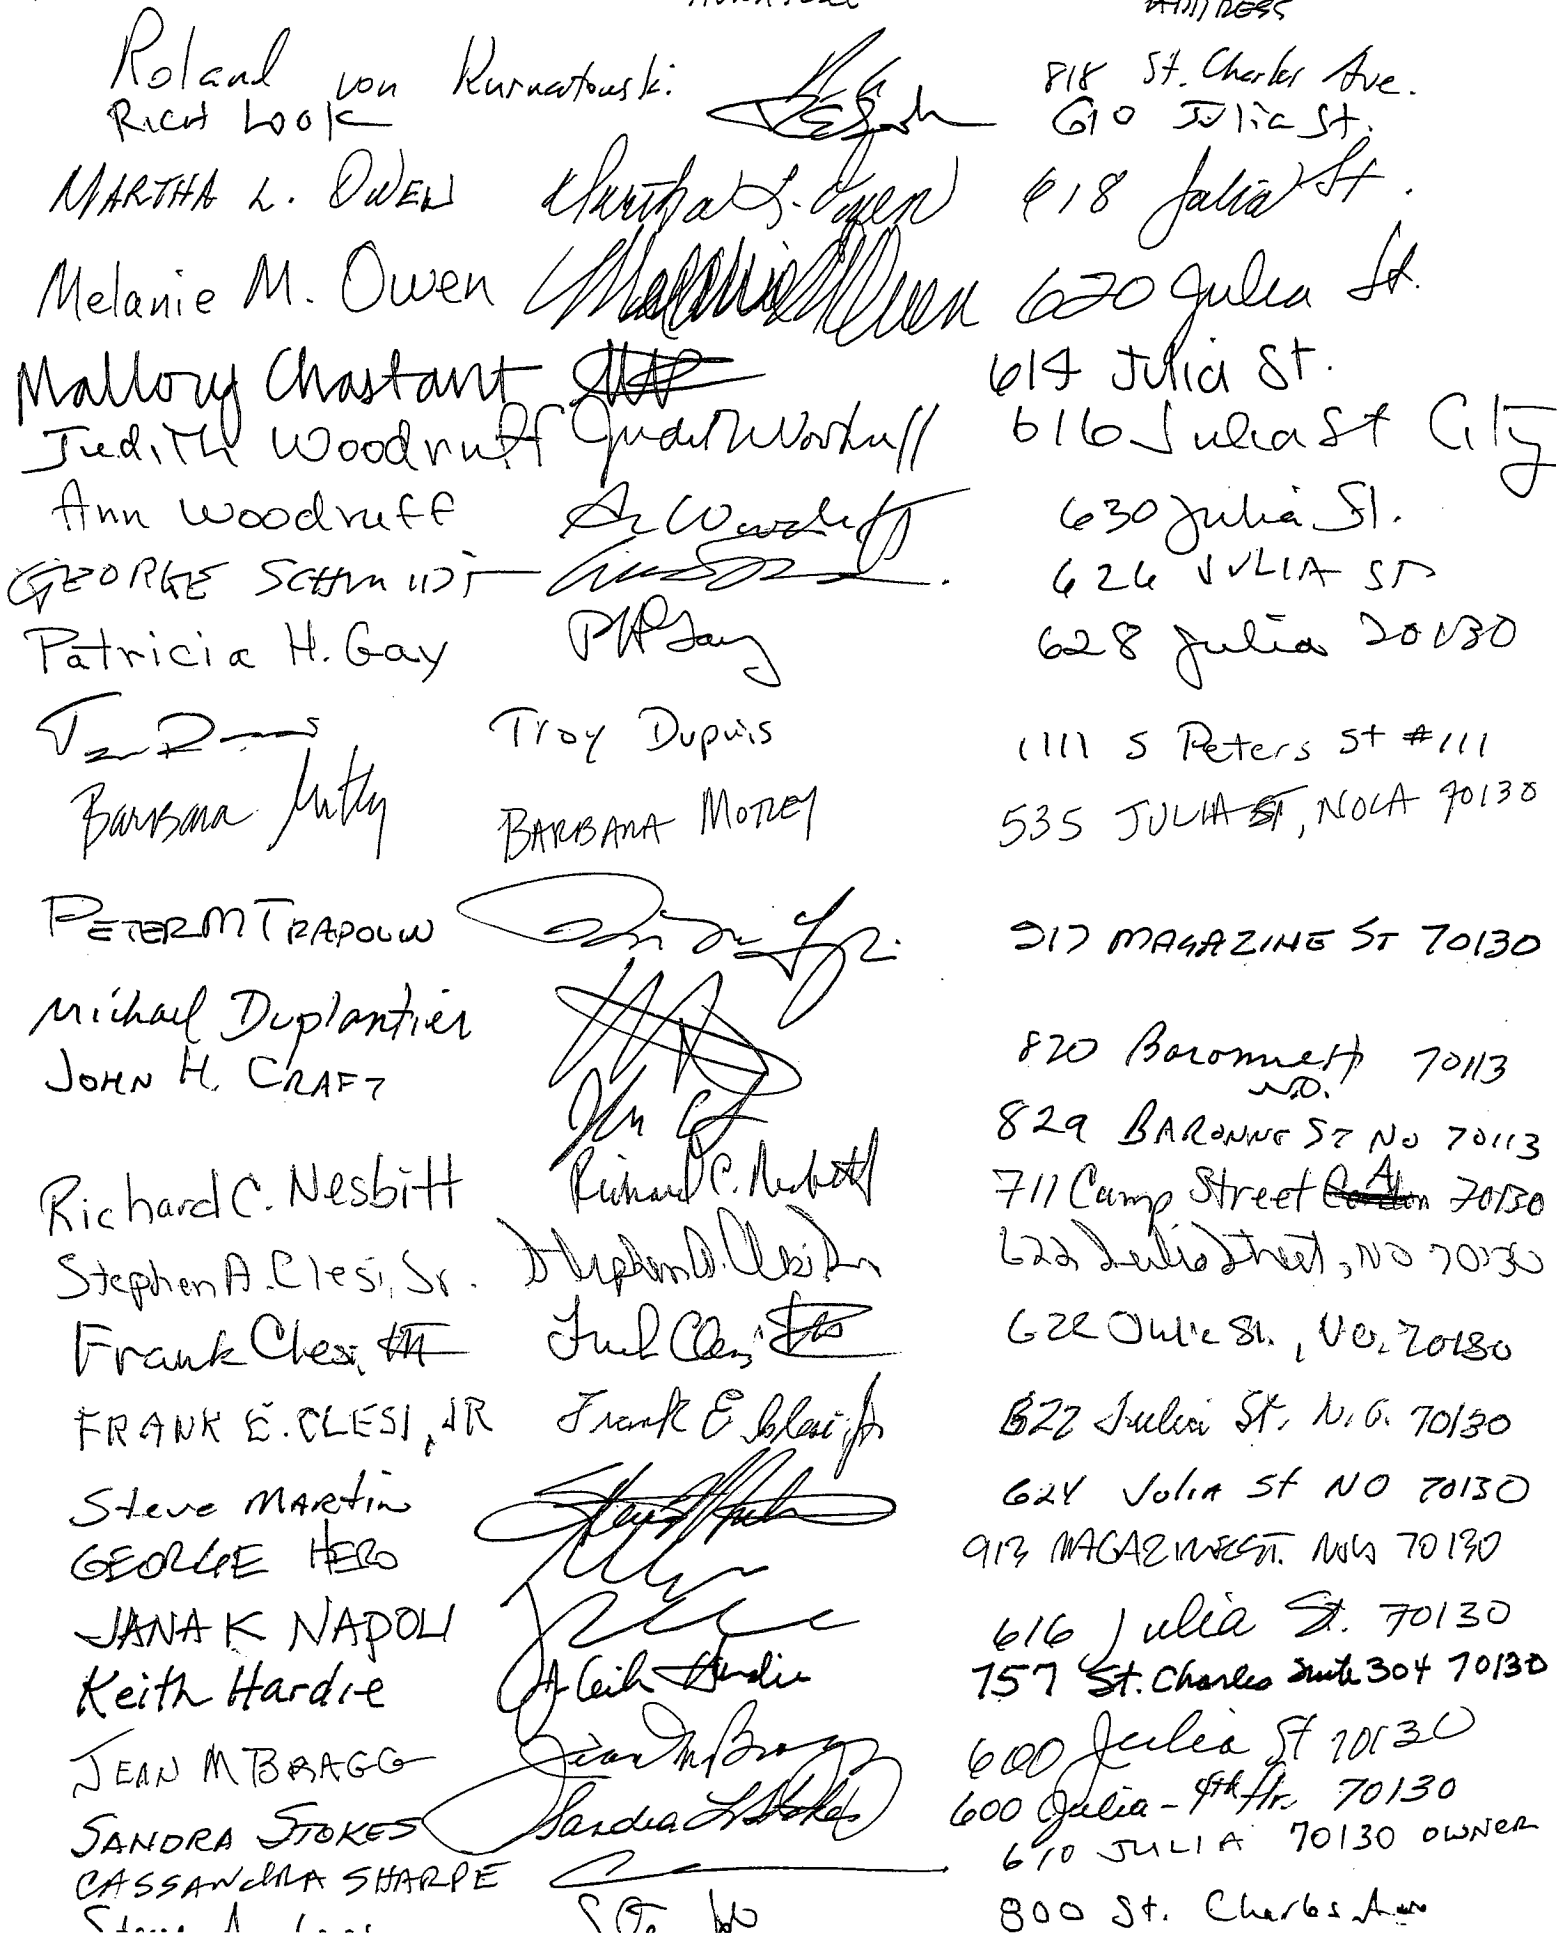 ADDRESS
Roland von Kurnatowski. 818 St. Charles Ave.
RICH LOOK 610 Julia St.
MARTHA L. OWEN Martha L. Owen 618 Julia St.
Melanie M. Owen Melanie M Owen 620 Julia St.
Mallory Chastant 614 Julia St.
Judith Woodruff Judith Woodruff 616 Julia St City
Ann Woodruff 630 Julia St.
GEORGE SCHMIDT 626 JULIA ST
Patricia H. Gay PHGay 628 Julia 70130
Troy Dupuis 1111 S Peters St #111
Barbara Motley BARBARA MOTLEY 535 JULIA ST, NOLA 70130
PETER M TRAPOLIN 917 MAGAZINE ST 70130
Michael Duplantier 820 Baronne St 70113
N.O.
JOHN H. CRAFT 829 BARONNE ST NO 70113
Richard C. Nesbitt Richard C. Nesbitt 711 Camp Street 70130
Stephen A. Clesi, Sr. Stephen A. Clesi Sr 622 Julia Street, NO 70130
Frank Clesi, III Frank Clesi III 622 Julia St., NO, 70130
FRANK E. CLESI, JR Frank E Clesi Jr 622 Julia St. N.O. 70130
Steve MARTIN Steve Martin 624 Julia St NO 70130
GEORGE HERO 913 MAGAZINE ST. NOLA 70130
JANA K NAPOLI 616 Julia St. 70130
Keith Hardie Keith Hardie 757 St. Charles Suite 304 70130
JEAN M BRAGG Jean M Bragg 600 Julia St 70130
SANDRA STOKES Sandra L Stokes 600 Julia - 4th flr. 70130
CASSANDRA SHARPE 610 JULIA 70130 OWNER
800 St. Charles Ave